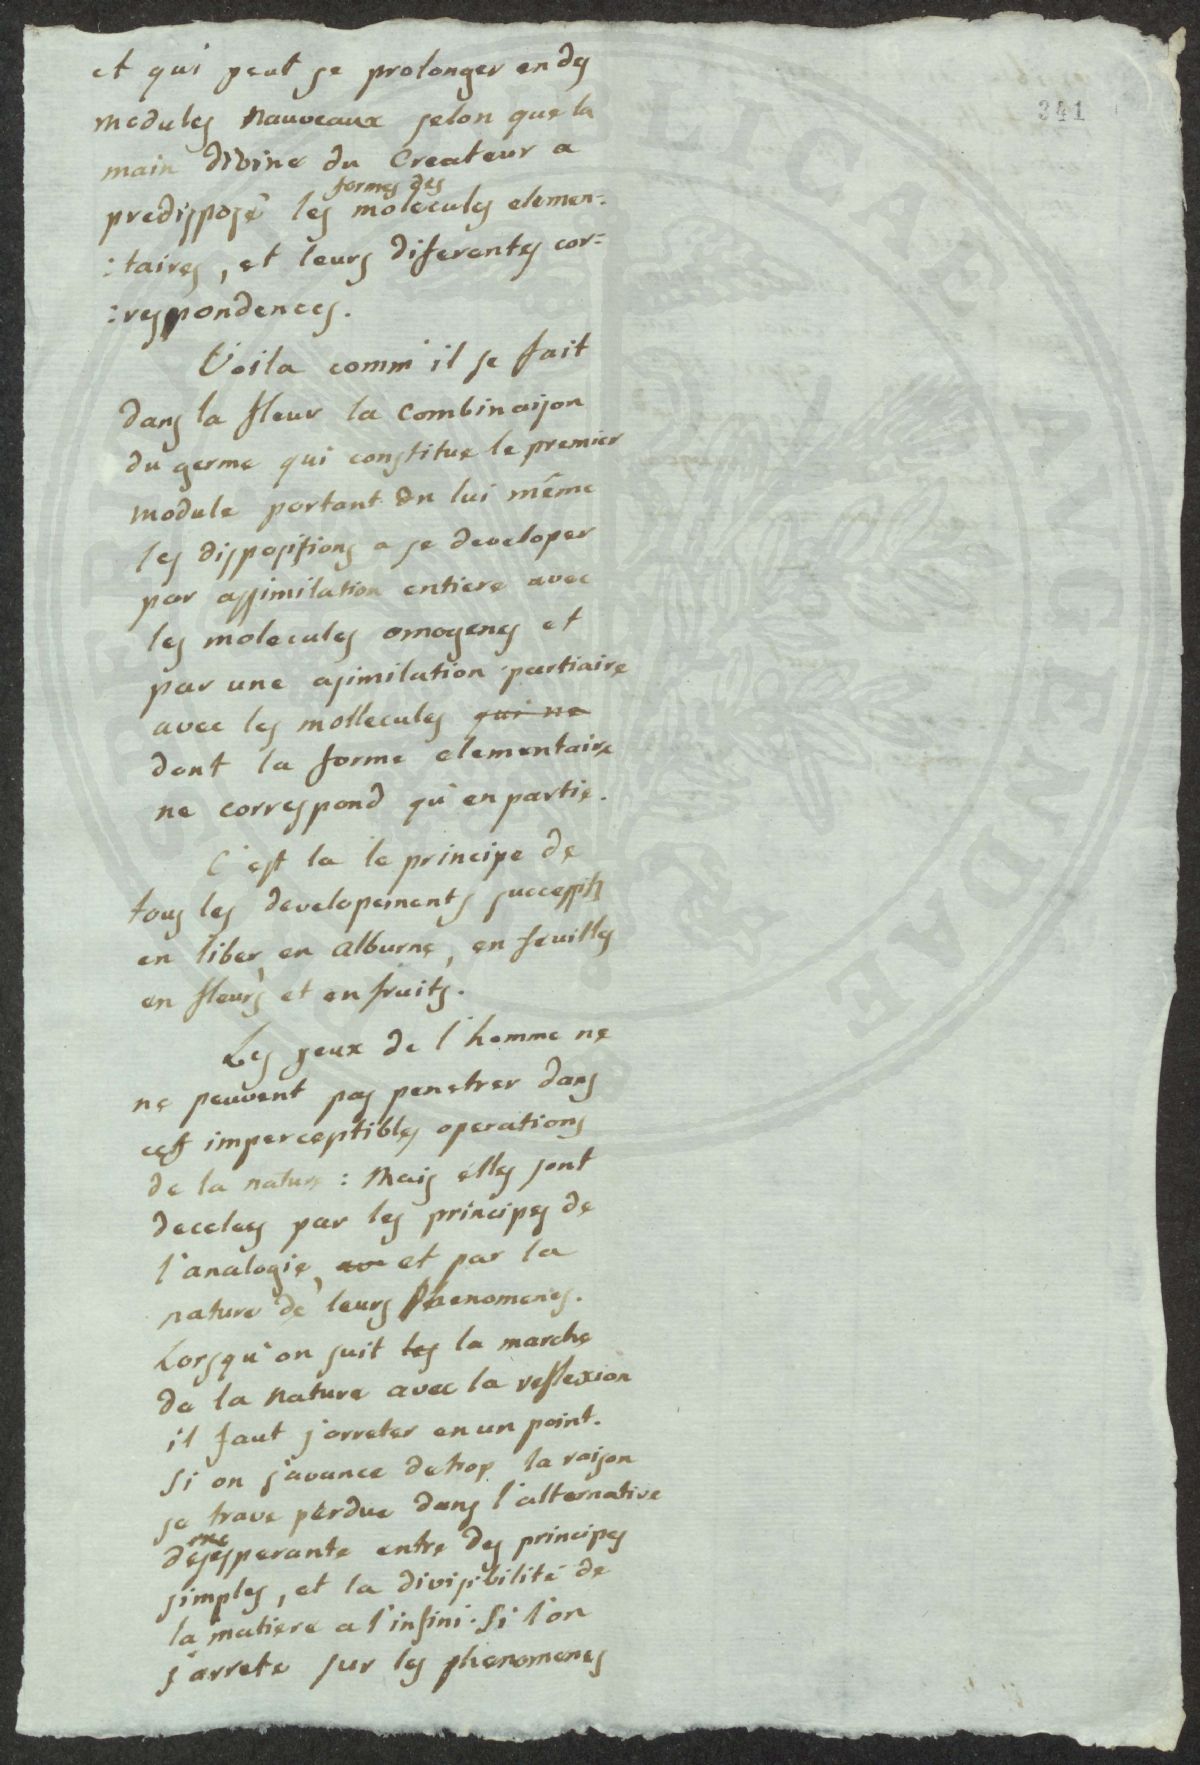 341
et qui peut se prolonger en des
modules nauveaux selon que la
main divine du Createur a
formes des
predisposé les molecules elemen=
:taires, et leurs diferentes cor=
:respondences.
Voila comm'il se fait
dans la fleur la combinaison
du germe qui constitue le premier
module portant en lui même
les dispositions a se developer
par assimilation entiere avec
les molecules omogenes et
par une asimilation partiaire
avec les mollecules qui ne
dont la forme elementaire
ne correspond qu'en partie.
C'est la le principe de
tous les developements successifs
en liber, en alburne, en feuilles
en fleurs et en fruits.
Les yeux de l'homme ne
ne peuvent pas penetrer dans
ces imperceptibles operations
de la nature : Mais elles sont
decelees par les principes de
l'analogie, et par la
nature de leurs phenomenes.
Lorsqu'on suit les la marche
de la nature avec la reflexion
il faut s'arreter en un point.
Si on s'avance detrop la raison
se trove perdue dans l'alternative
desesperante entre des principes
simples, et la divisibilité de
la matiere a l'infini. Si l'on
s'arrete sur les phenomenes